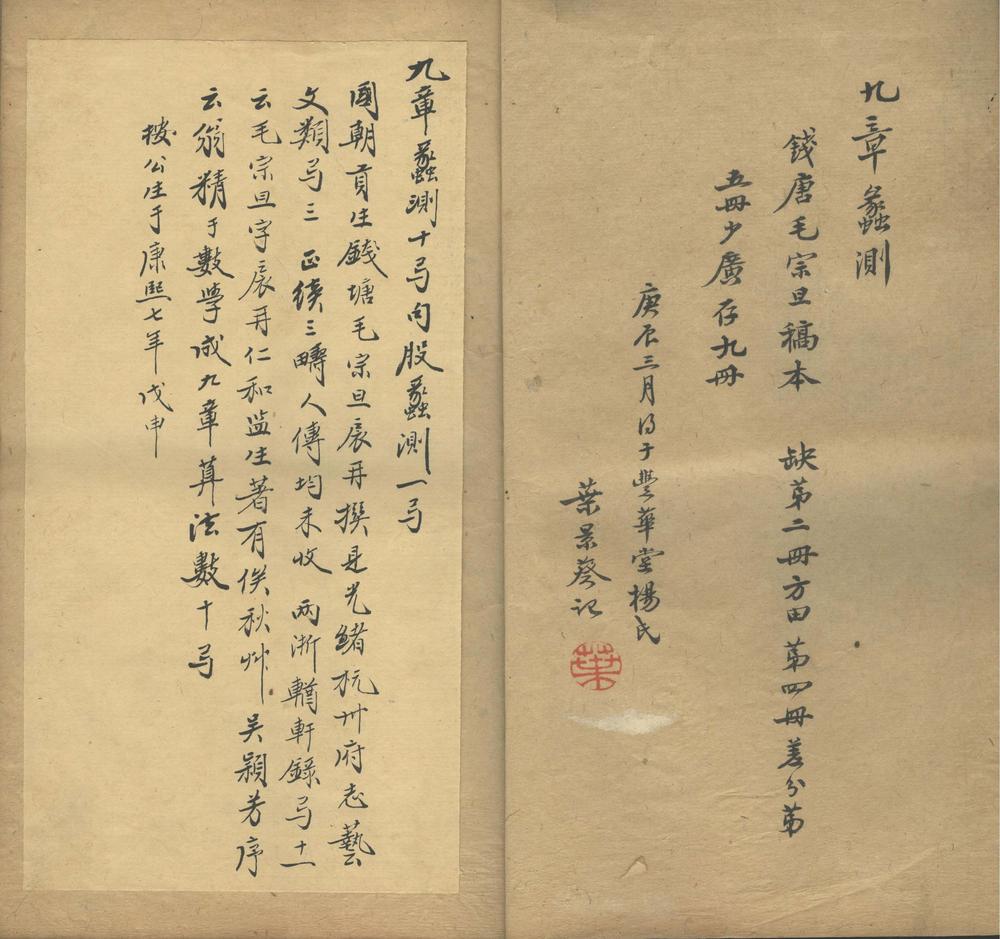 九章蠡測
錢唐毛宗旦稿本　缺第二冊方田第四冊差分第
五冊少廣存九冊
庚辰三月得于豐華堂楊氏
葉景葵記
葉
九章蠡測十弓句股蠡測一弓
國朝貢生錢塘毛宗旦扆再撰見光緒杭州府志藝
文類弓三　正續三疇人傳均未收　兩浙輶軒錄弓十一
云毛宗旦字扆再仁和監生著有俟秋艸　吴穎芳序
云翁精于數學成九章算法數十弓
按公生于康熙七年戊申